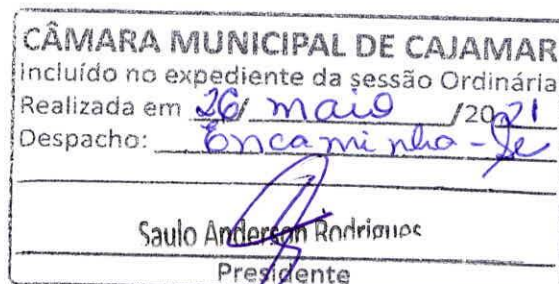 CÂMARA MUNICIPAL DE CAJAMAR
incluído no expediente da sessão Ordinária
Realizada em 26/ maio /2021
Despacho: Encaminha-se
Saulo Anderson Rodrigues
Presidente